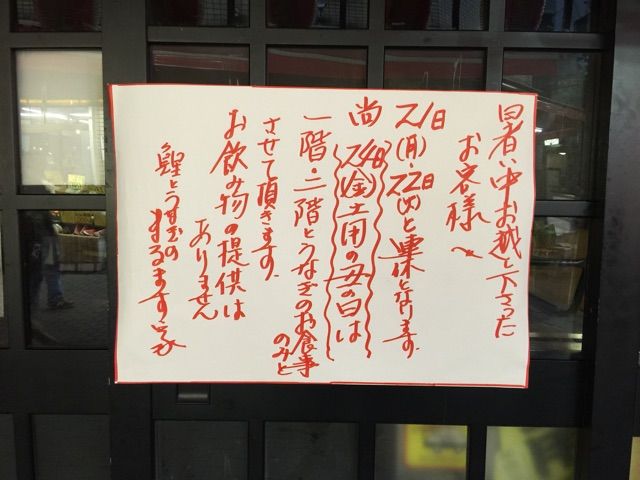 暑い中お越し下さった
お客様へ
21日(月)・22日(火)と連休となります。
尚24日(金)土用の丑の日は
一階・二階とうなぎのお食事のみと
させて頂きます。
お飲み物の提供は
ありません
鯉とうなぎの
まるます家